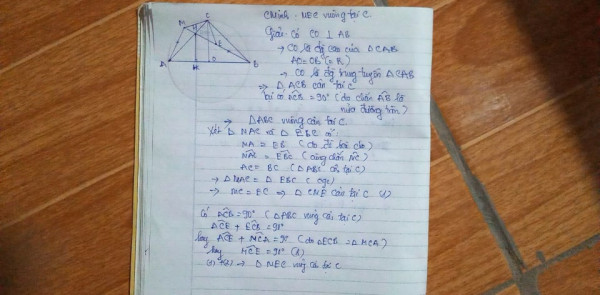 CMinh: NEC vuông tại C
Giải: Có CO ⊥ AB
→ CO là độ cao của ΔCAB
AO = OB (= R)
→ CO là độ trung tuyến ΔCAB
→ Δ ACB cân tại C
có ACB = 90° (do chắn AB là
nửa đường tròn)
→ ΔABC vuông cân tại C
Xét Δ MAC và Δ EBC có:
MA = EB (do đề bài cho)
MAC = EBC (cùng chắn MC)
AC = BC (ΔABC cân tại C)
→ ΔMAC = Δ EBC (cgc)
→ MC = EC → Δ CME cân tại C (1)
Có ACB = 90° (ΔABC vuông cân tại C)
ACE + ECB = 90°
hay ACE + MCA = 90° (do ΔECB = ΔMCA)
hay MCE = 90° (2)
(1) + (2) → Δ MEC vuông cân tại C
M
C
H
E
A
K
O
B